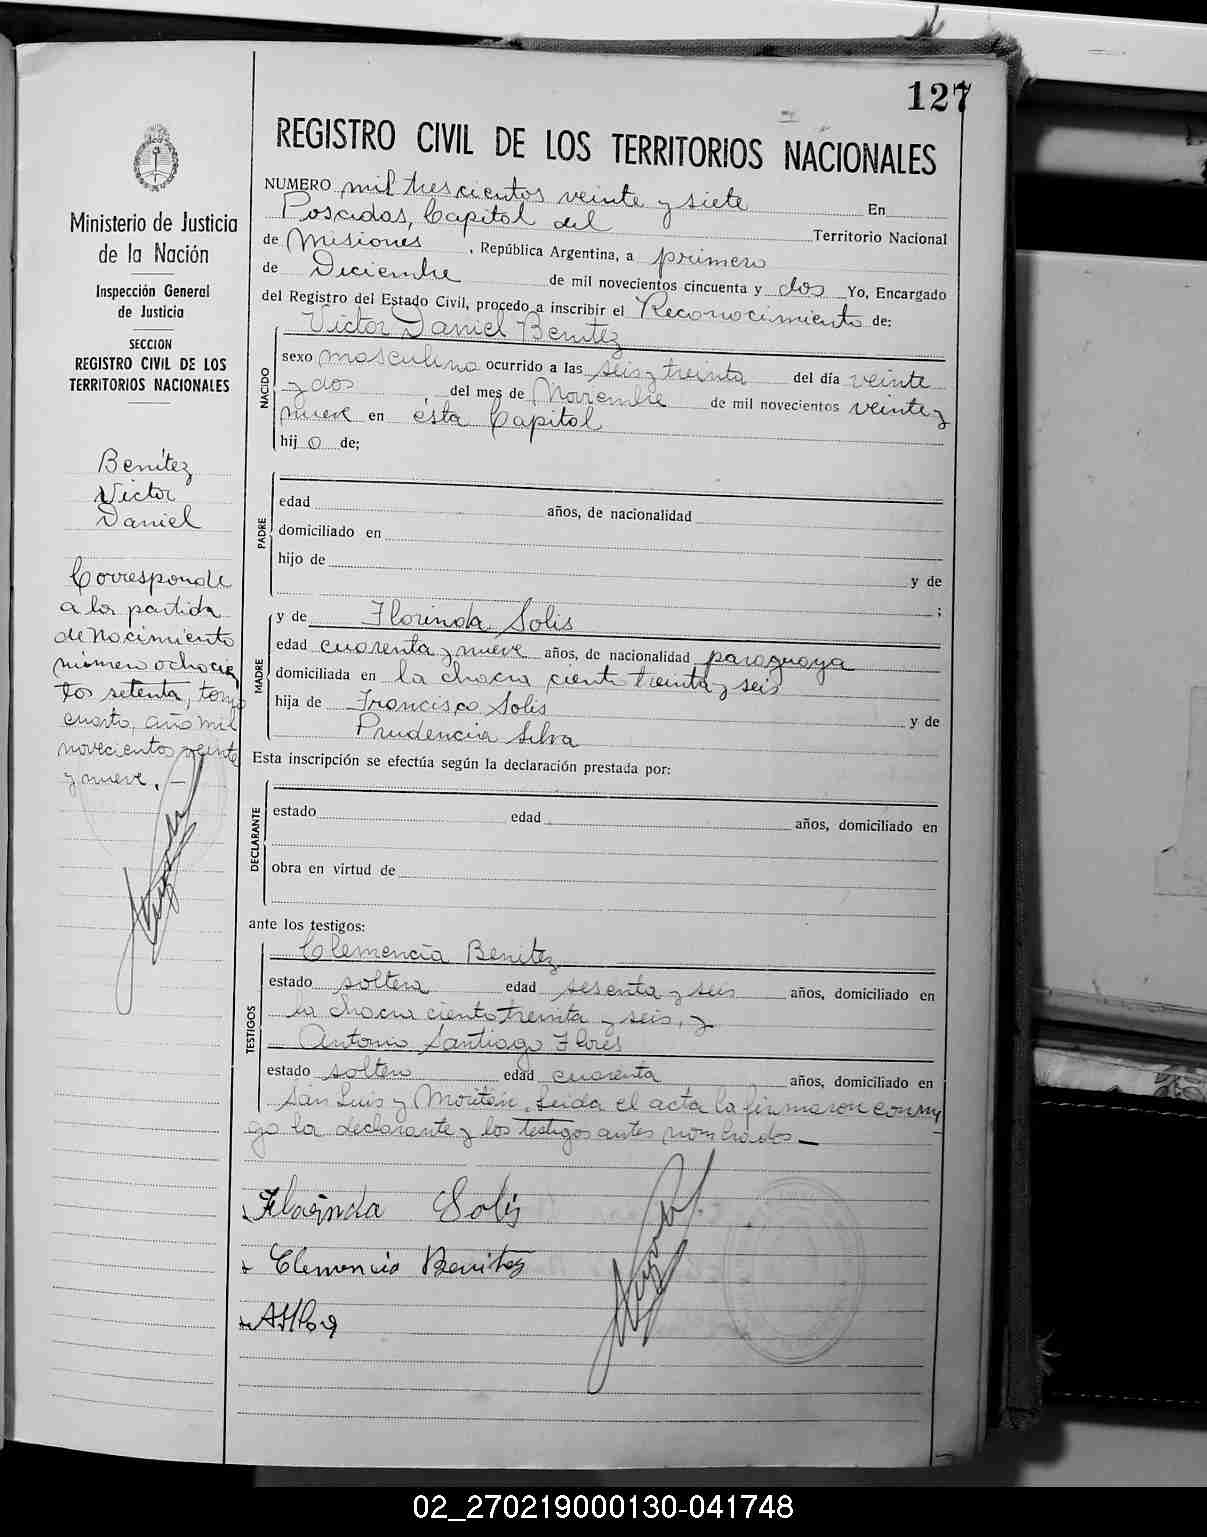 127
REGISTRO CIVIL DE LOS TERRITORIOS NACIONALES
Ministerio de Justicia
de la Nación
Inspección General
de Justicia
SECCION
REGISTRO CIVIL DE LOS
TERRITORIOS NACIONALES
Benítez
Victor
Daniel
Corresponde
a la partida
de Nacimiento
número ochocien
tos setenta, tomo
cuarto, año mil
novecientos veinte
y nueve. —
NUMERO mil trescientos veinte y siete En
Posadas, Capital del Territorio Nacional
de Misiones, República Argentina, a primero
de Diciembre de mil novecientos cincuenta y dos Yo, Encargado
del Registro del Estado Civil, procedo a inscribir el Reconocimiento de:
NACIDO
Victor Daniel Benítez
sexo masculino ocurrido a las seis y treinta del día veinte
y dos, del mes de Noviembre de mil novecientos veinte y
nueve en esta Capital
hij o de;
PADRE
edad años, de nacionalidad
domiciliado en
hijo de y de
;
MADRE
y de Florinda Solis
edad cuarenta y nueve años, de nacionalidad paraguaya
domiciliada en la chacra ciento treinta y seis
hija de Francisco Solis y de
Prudencia Silva
Esta inscripción se efectúa según la declaración prestada por:
DECLARANTE
estado edad años, domiciliado en
obra en virtud de
ante los testigos:
TESTIGOS
Clemencia Benitez
estado soltera edad sesenta y seis años, domiciliado en
la chacra ciento treinta y seis, y
Antonio Santiago Flores
estado soltero edad cuarenta años, domiciliado en
San Luis y Moritán. Leida el acta la firmaron conmi
go la declarante y los testigos antes nombrados —
Florinda Solis
Clemencia Benitez
02_270219000130-041748